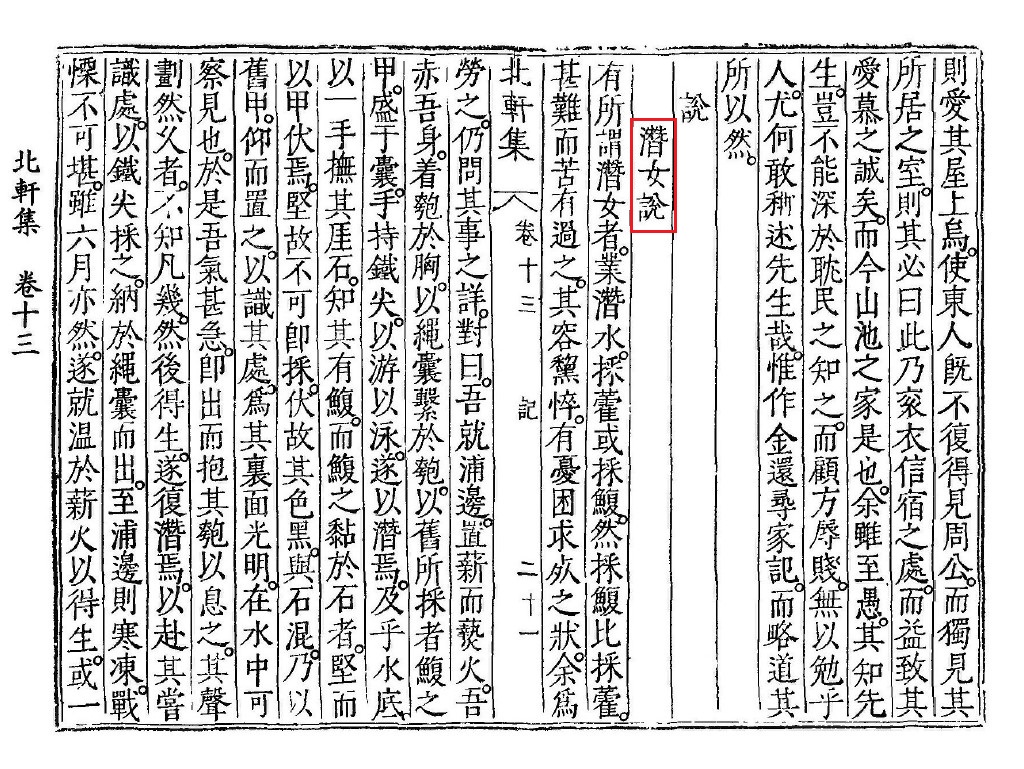 則愛其屋上烏。使東人既不復得見周公。而獨見其
所居之室。則其必曰此乃衮衣信宿之處。而益致其
愛慕之誠矣。而今山池之家是也。余雖至愚。其知先
生。豈不能深於耽民之知之。而顧方辱賤。無以勉乎
人尤。何敢稱述先生哉。惟作金還尋家記。而略道其
所以然。
說
潛女說
有所謂潛女者。業潛水。採藿或採鰒。然採鰒比採藿。
甚難而苦有過之。其容黧悴。有憂困求死之狀。余爲
北軒集 卷十三 記 二十一
勞之。仍問其事之詳。對曰。吾就浦邊。置薪而爇火。吾
赤吾身。着匏於胸。以繩囊繫於匏。以舊所採者鰒之
甲。盛于囊。手持鐵尖。以游以泳。遂以潛焉。及乎水底。
以一手撫其厓石。知其有鰒。而鰒之黏於石者。堅而
以甲伏焉。堅故不可卽採。伏故其色黑。與石混。乃以
舊甲。仰而置之。以識其處。爲其裏面光明。在水中可
察見也。於是吾氣甚急。卽出而抱其匏以息之。其聲
劃然久者。不知凡幾。然後得生。遂復潛焉。以赴其嘗
識處。以鐵尖採之。納於繩囊而出。至浦邊則寒凍。戰
慄不可堪。雖六月亦然。遂就温於薪火以得生。或一
北軒集 卷十三